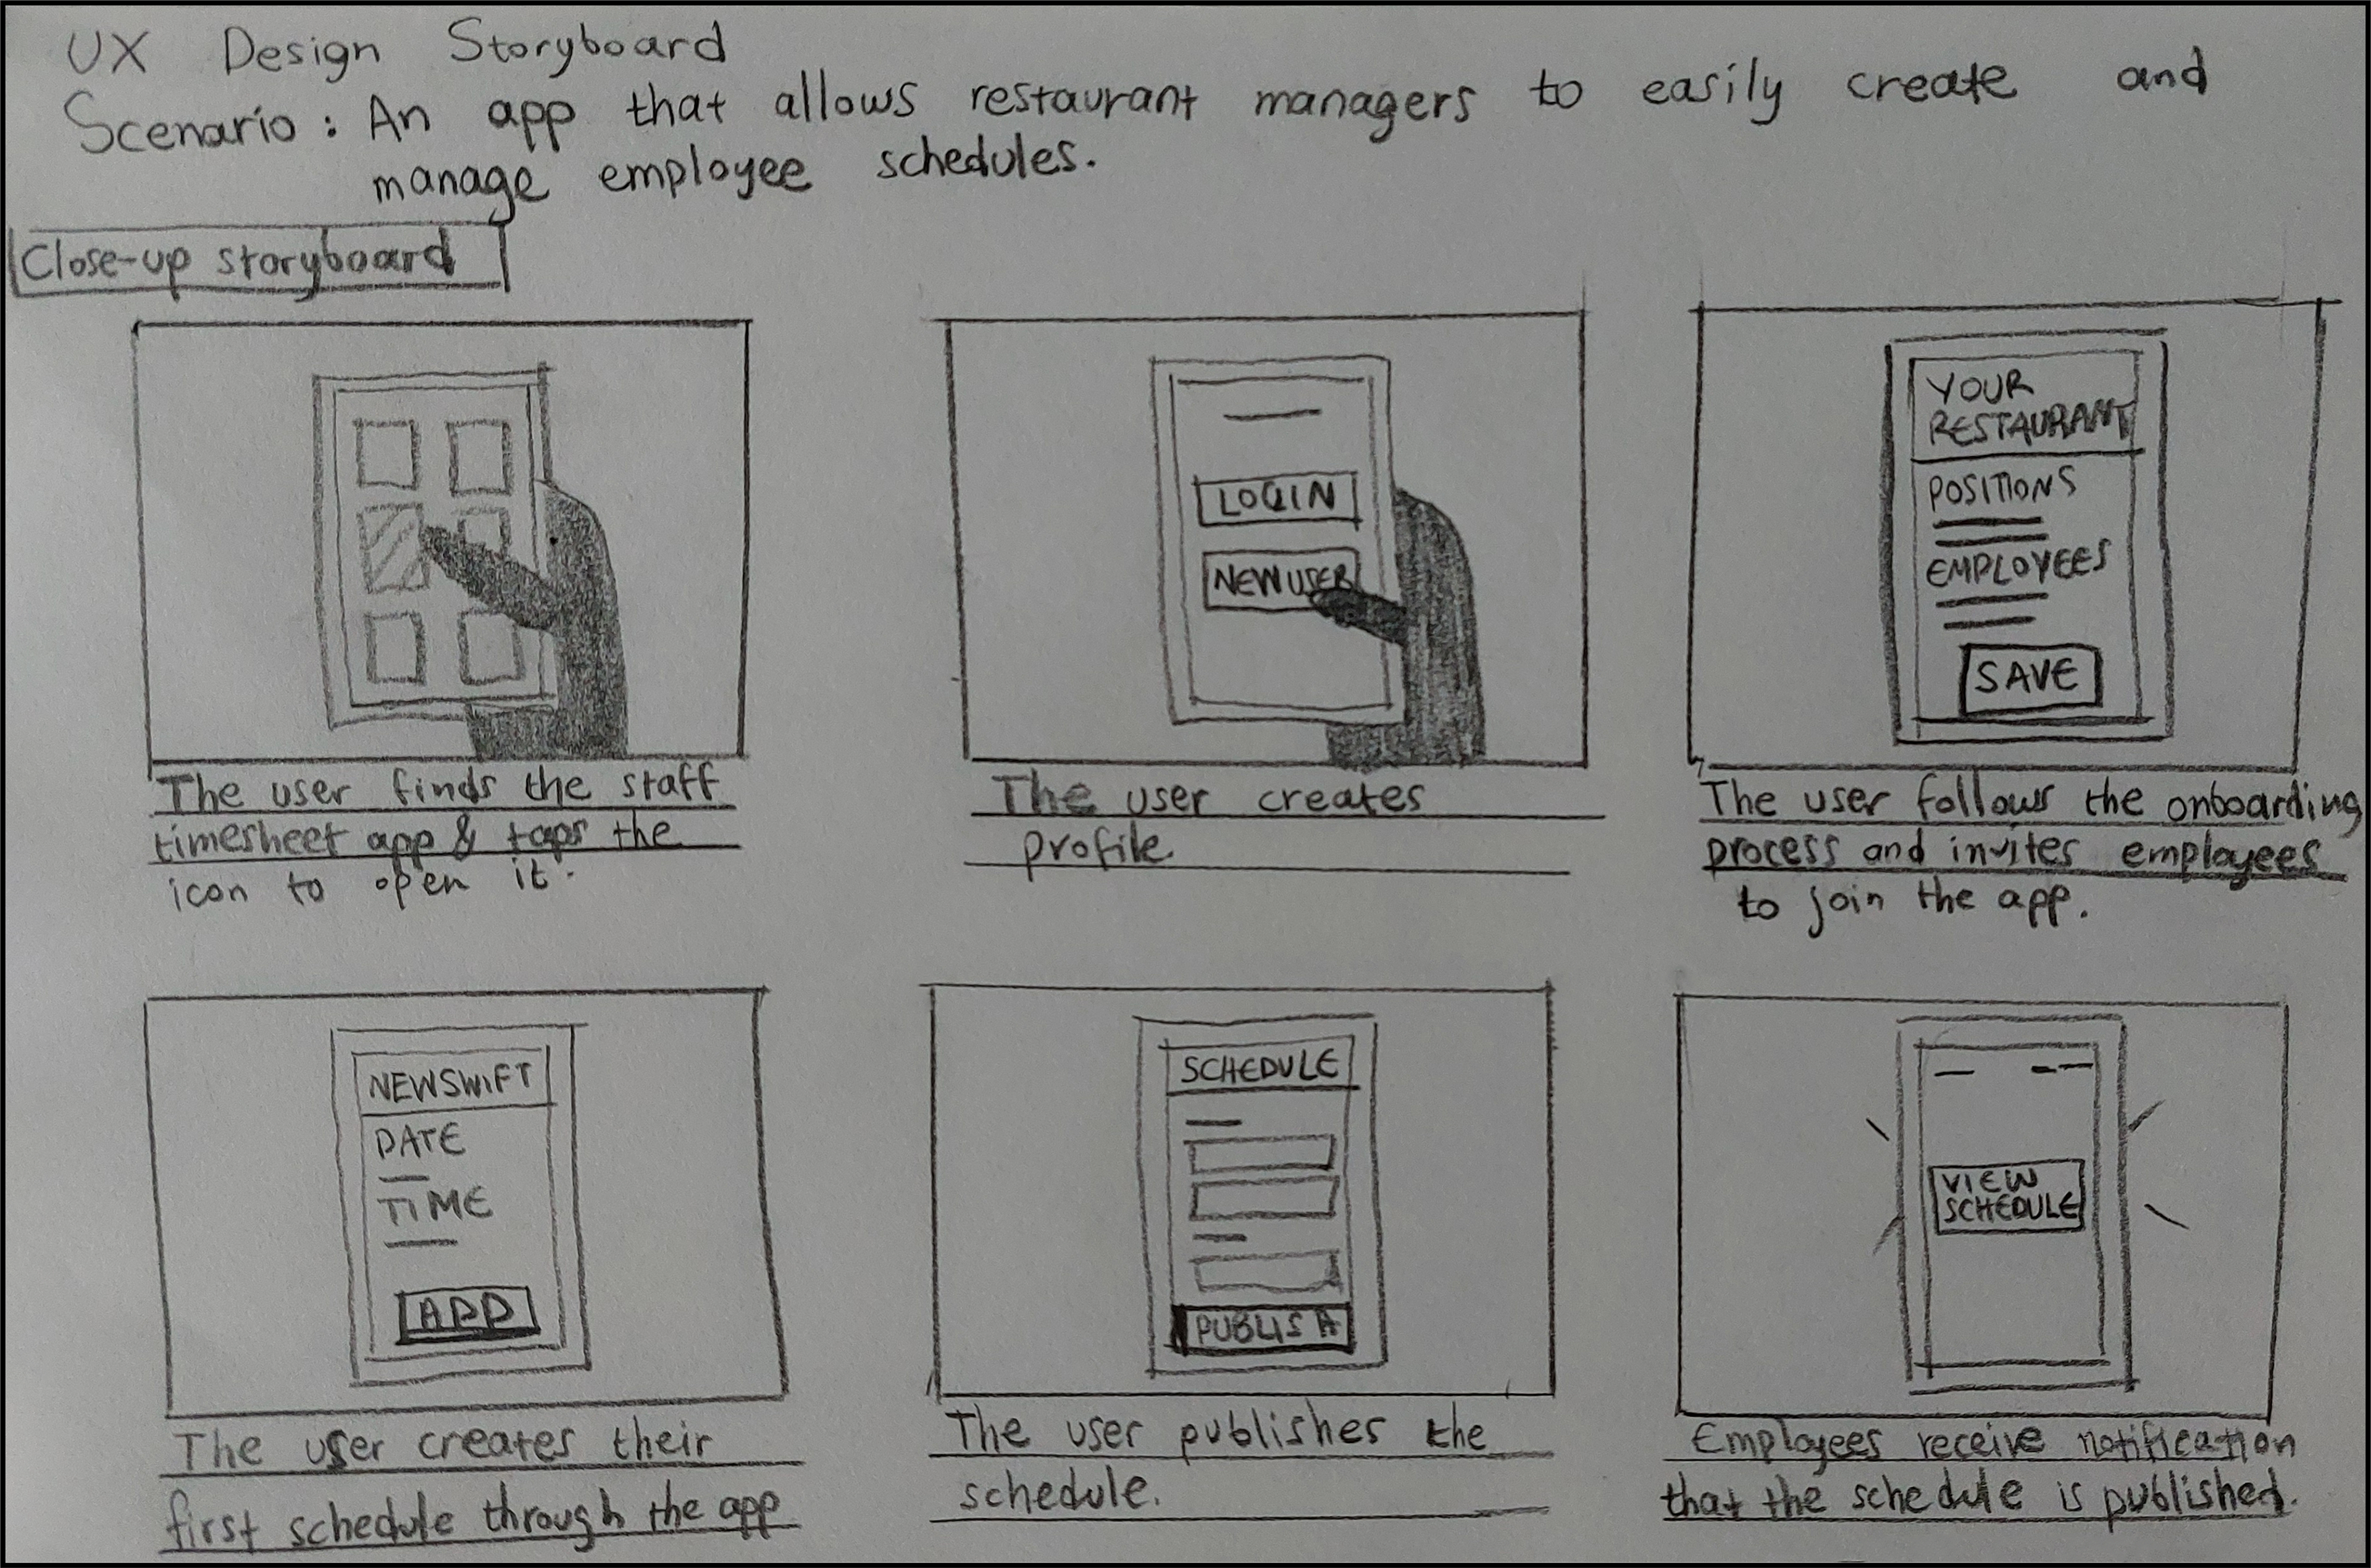 UX Design Storyboard
Scenario: An app that allows restaurant managers to easily create and
manage employee schedules.
Close-up storyboard
The user finds the staff
timesheet app & taps the
icon to open it.
LOGIN
NEW USER
The user creates
profile.
YOUR
RESTAURANT
POSITIONS
EMPLOYEES
SAVE
The user follows the onboarding
process and invites employees
to join the app.
NEWSWIFT
DATE
TIME
APP
The user creates their
first schedule through the app
SCHEDULE
PUBLISH
The user publishes the
schedule.
VIEW
SCHEDULE
Employees receive notification
that the schedule is published.